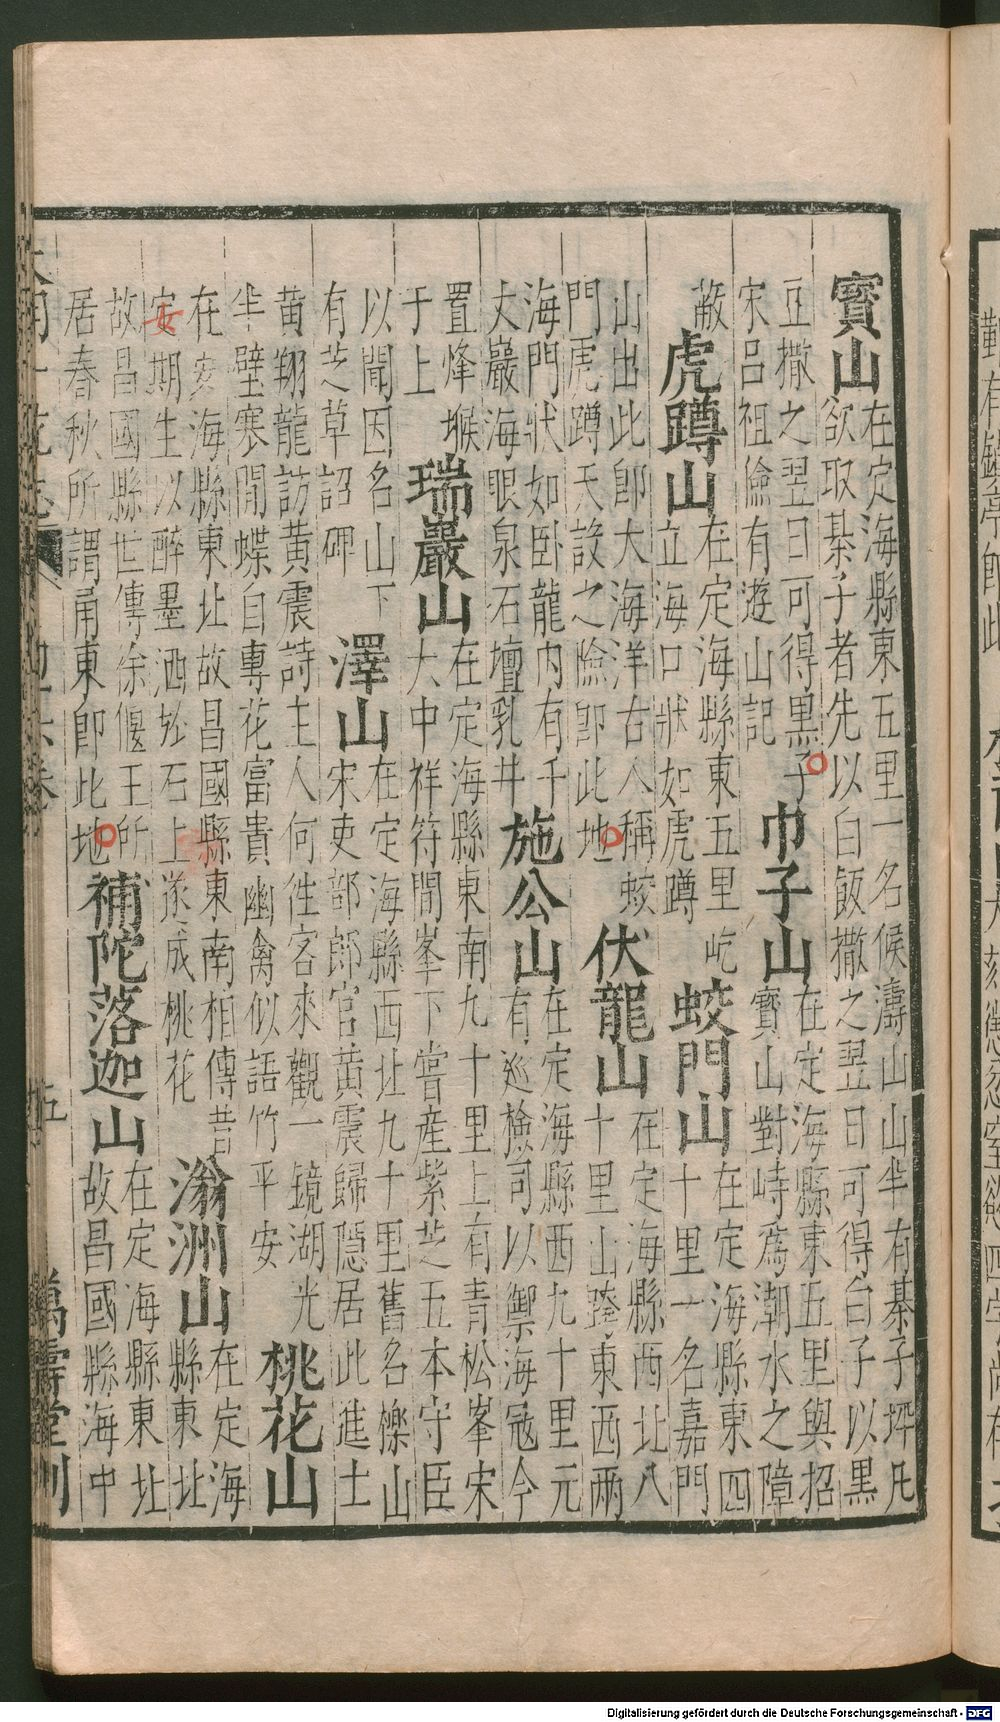 寶山在定海縣東五里一名候濤山山半有棊子坪凡
欲取棊子者先以白飯撒之翌日可得白子以黑
豆撒之翌日可得黑子
宋呂祖儉有遊山記
巾子山在定海縣東五里與招
寶山對峙為潮水之障
蔽
虎蹲山在定海縣東五里屹
立海口狀如虎蹲
蛟門山在定海縣東四
十里一名嘉門
山出此即大海洋古人稱蛟
門虎蹲天設之險即此地
伏龍山在定海縣西北八
十里山跨東西兩
海門狀如卧龍內有千
丈巖海眼泉石壇乳井
施公山在定海縣西九十里元
有巡檢司以禦海寇今
置烽堠
于上
瑞巖山在定海縣東南九十里上有青松峯宋
大中祥符間峯下嘗產紫芝五本守臣
以聞因名山下
有芝草詔碑
澤山在定海縣西北九十里舊名櫟山
宋吏部郎官黃震歸隱居此進士
黃翔龍訪黃震詩主人何徃客來觀一鏡湖光
半壁寒閒蝶自專花富貴幽禽似語竹平安
桃花山
在安海縣東北故昌國縣東南相傳昔
定期生以醉墨洒於石上遂成桃花
安
滃洲山在定海
縣東北
故昌國縣世傳徐偃王所
居春秋所謂甬東即此地
補陀落迦山在定海縣東北
故昌國縣海中
五
萬壽堂刊
Digitalisierung gefördert durch die Deutsche Forschungsgemeinschaft - DFG